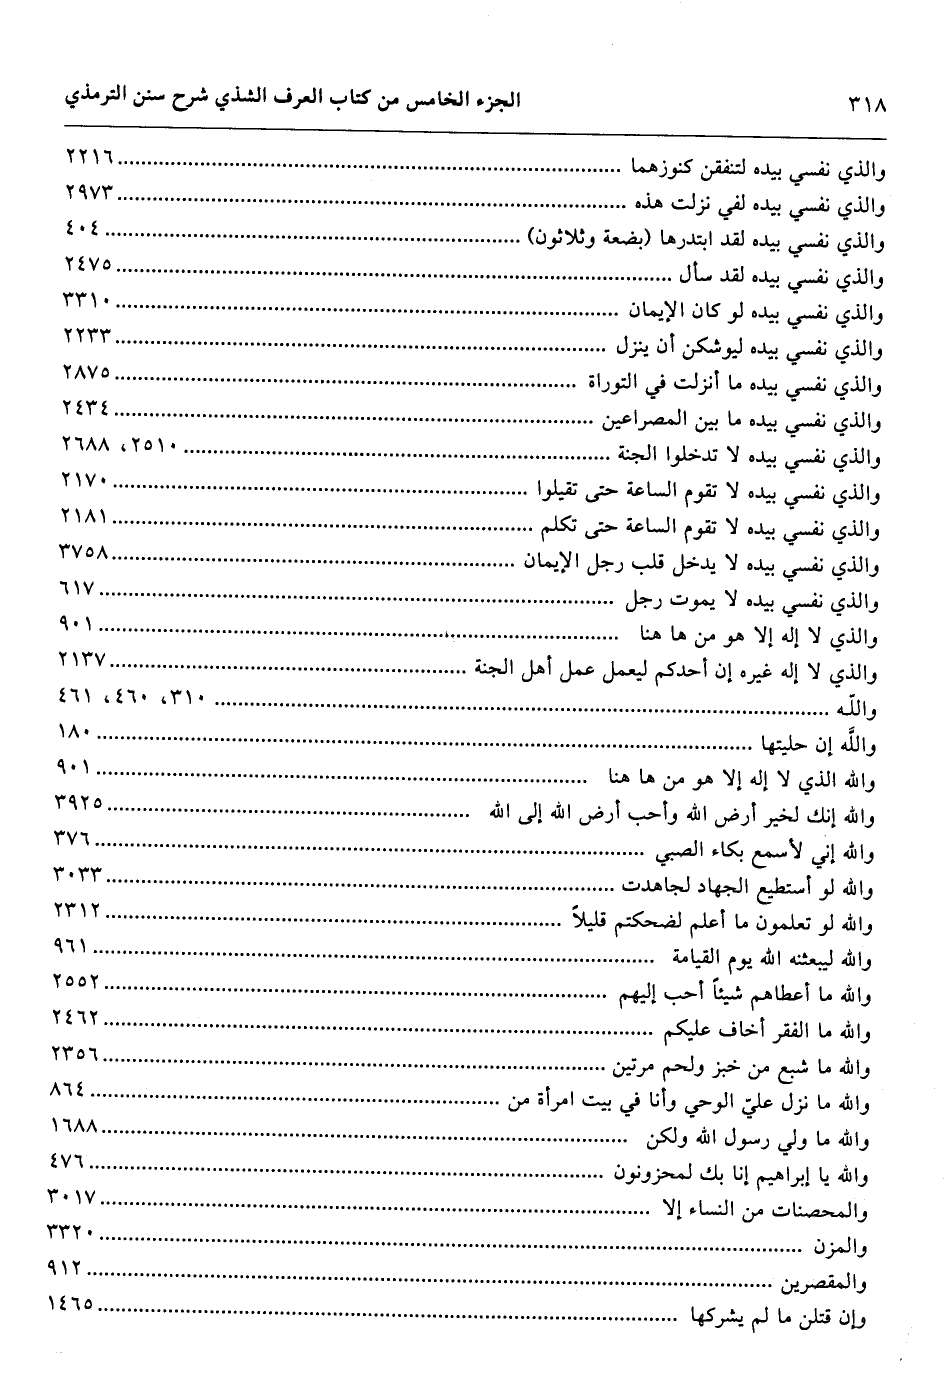 ٣١٨ الجزء الخامس من كتاب العرف الشذي شرح سنن الترمذي
والذي نفسي بيده لتنفقن كنوزهما ........ ٢٢١٦
والذي نفسي بيده لفي نزلت هذه ........ ٢٩٧٣
والذي نفسي بيده لقد ابتدرها (بضعة وثلاثون) ........ ٤٠٤
والذي نفسي بيده لقد سأل ........ ٢٤٧٥
والذي نفسي بيده لو كان الإيمان ........ ٣٣١٠
والذي نفسي بيده ليوشكن أن ينزل ........ ٢٢٣٣
والذي نفسي بيده ما أنزلت في التوراة ........ ٢٨٧٥
والذي نفسي بيده ما بين المصراعين ........ ٢٤٣٤
والذي نفسي بيده لا تدخلوا الجنة ........ ٢٥١٠، ٢٦٨٨
والذي نفسي بيده لا تقوم الساعة حتى تقيلوا ........ ٢١٧٠
والذي نفسي بيده لا تقوم الساعة حتى تكلم ........ ٢١٨١
والذي نفسي بيده لا يدخل قلب رجل الإيمان ........ ٣٧٥٨
والذي نفسي بيده لا يموت رجل ........ ٦١٧
والذي لا إله إلا هو من ها هنا ........ ٩٠١
والذي لا إله غيره إن أحدكم ليعمل عمل أهل الجنة ........ ٢١٣٧
واللّه ........ ٣١٠، ٤٦٠، ٤٦١
واللَّه إن حليتها ........ ١٨٠
والله الذي لا إله إلا هو من ها هنا ........ ٩٠١
والله إنك لخير أرض الله وأحب أرض الله إلى الله ........ ٣٩٢٥
والله إني لأسمع بكاء الصبي ........ ٣٧٦
والله لو أستطيع الجهاد لجاهدت ........ ٣٠٣٣
والله لو تعلمون ما أعلم لضحكتم قليلاً ........ ٢٣١٢
والله ليبعثنه الله يوم القيامة ........ ٩٦١
والله ما أعطاهم شيئاً أحب إليهم ........ ٢٥٥٢
والله ما الفقر أخاف عليكم ........ ٢٤٦٢
والله ما شبع من خبز ولحم مرتين ........ ٢٣٥٦
والله ما نزل عليّ الوحي وأنا في بيت امرأة من ........ ٨٦٤
والله ما ولي رسول الله ولكن ........ ١٦٨٨
والله يا إبراهيم إنا بك لمحزونون ........ ٤٧٦
والمحصنات من النساء إلا ........ ٣٠١٧
والمزن ........ ٣٣٢٠
والمقصرين ........ ٩١٢
وإن قتلن ما لم يشركها ........ ١٤٦٥